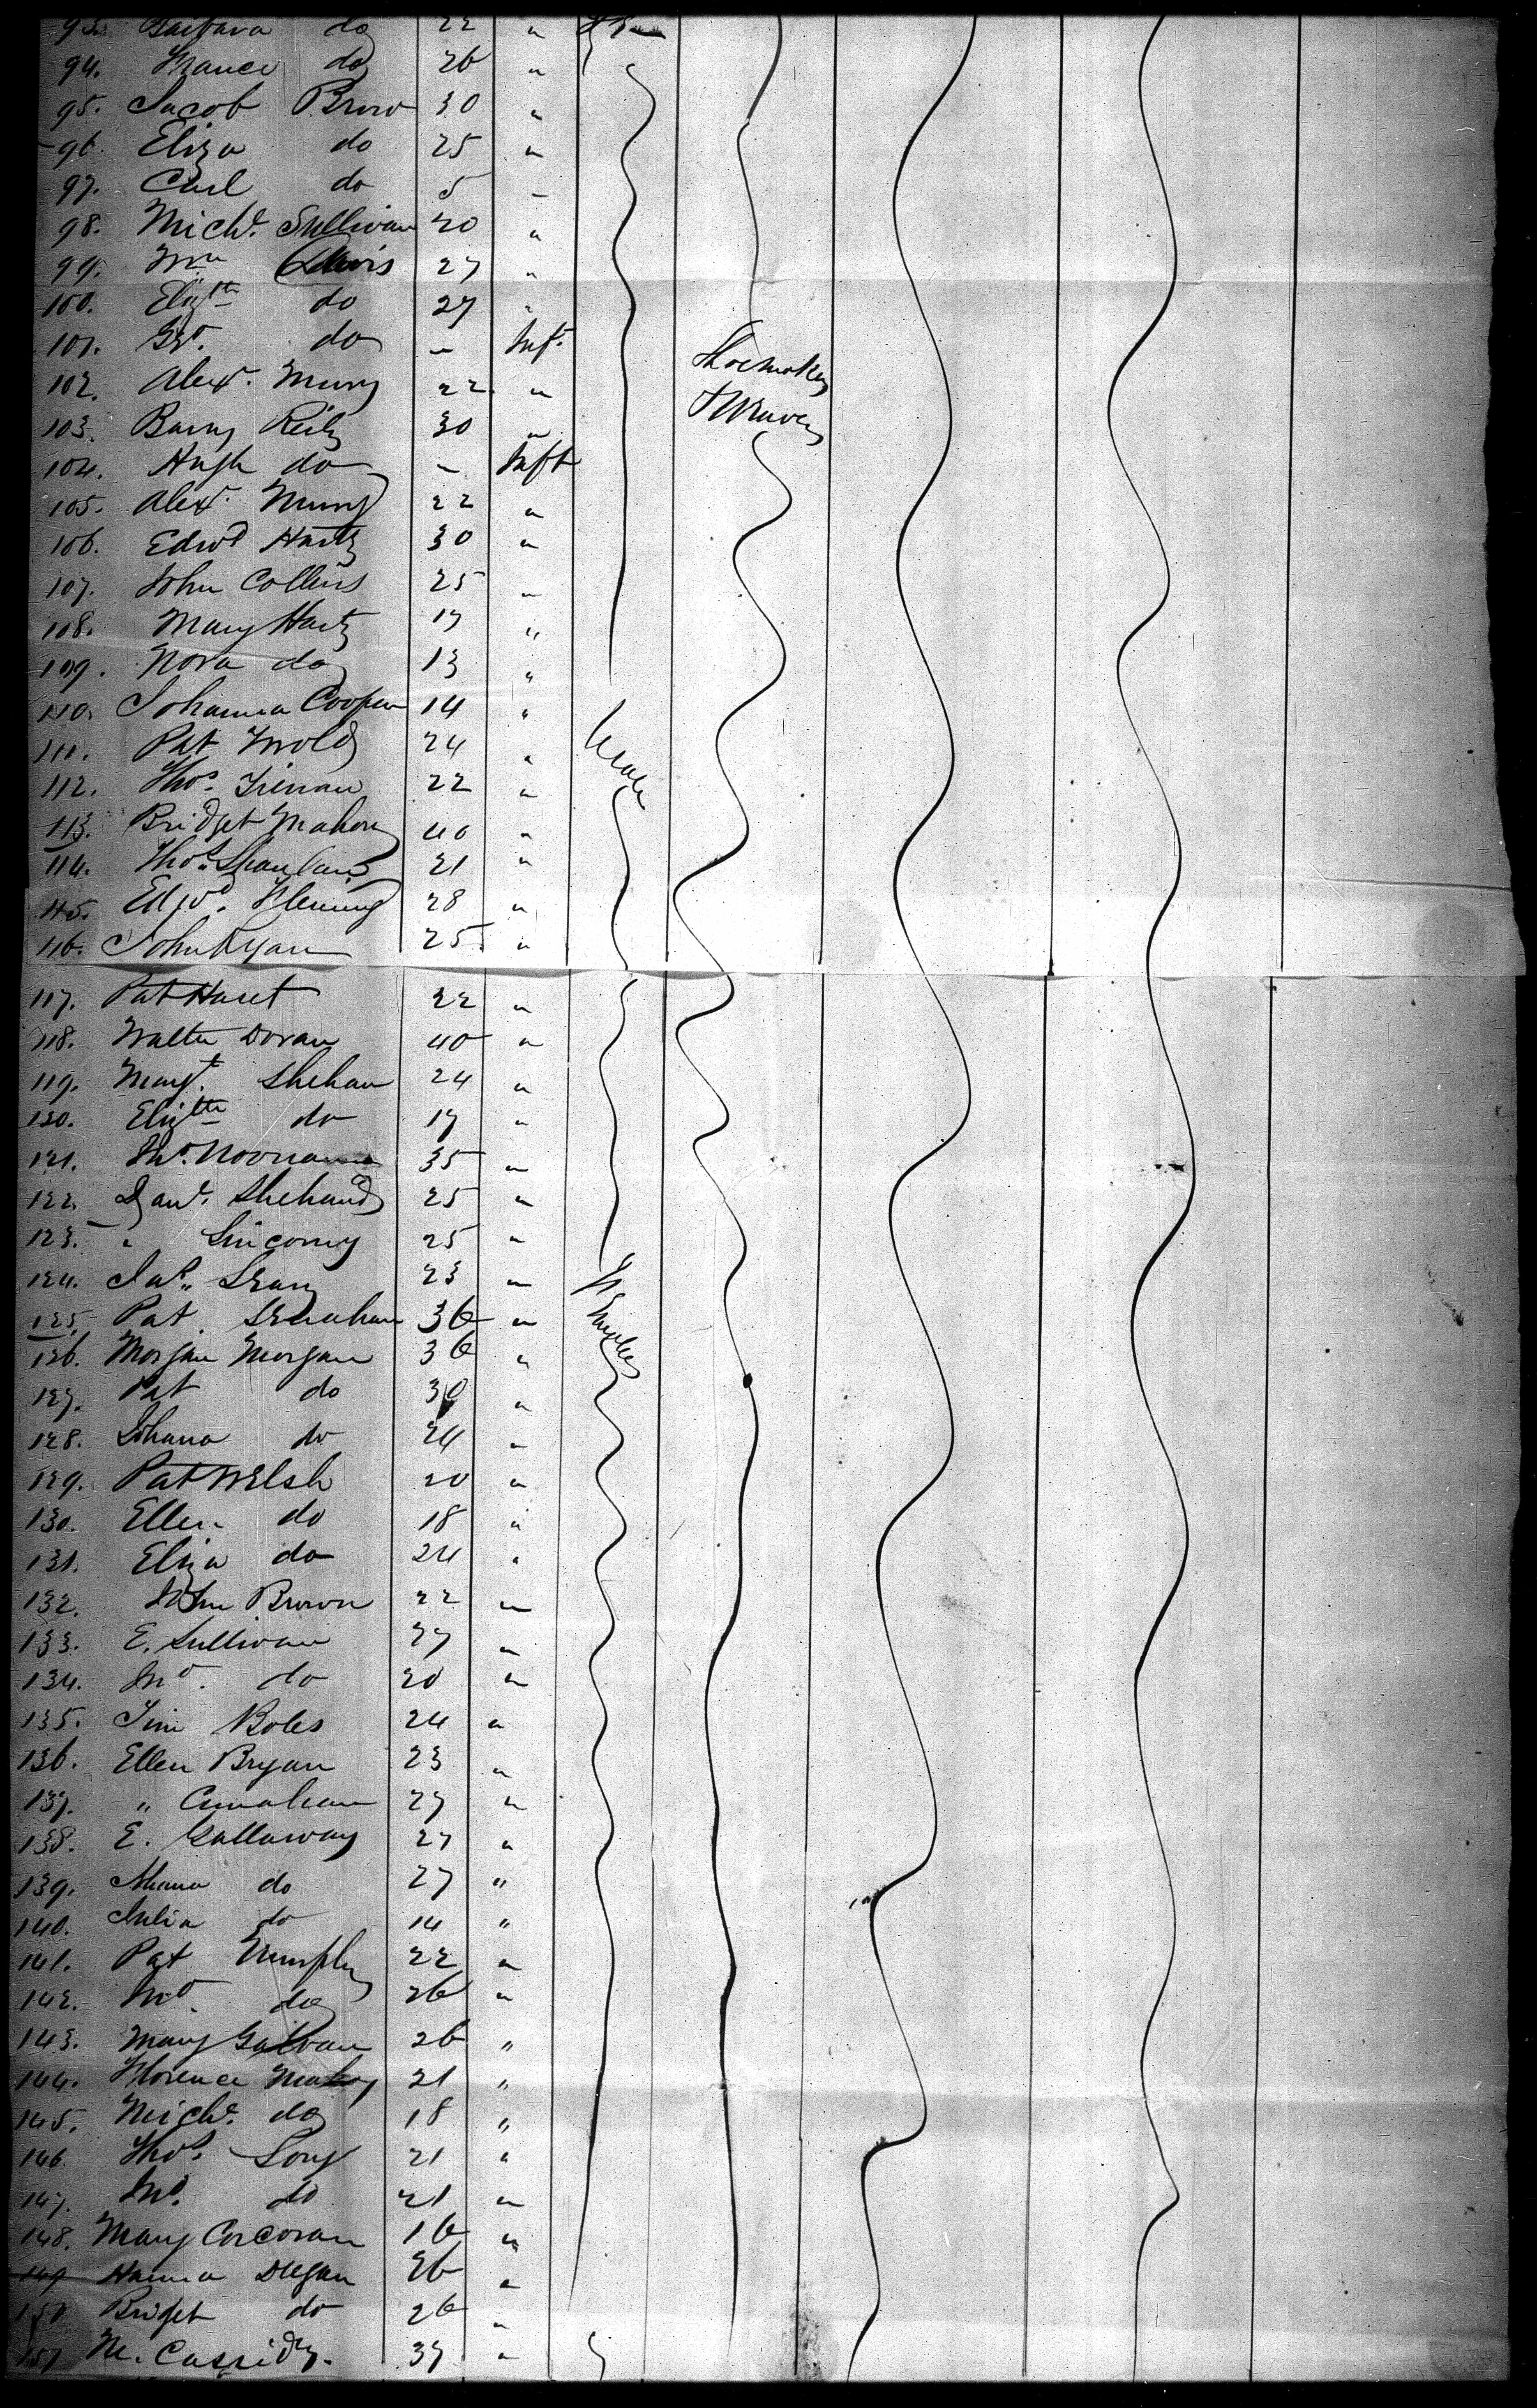 93. Barbara do 22 "
94. France do 26 "
95. Jacob Brow 30 "
96. Eliza do 25 "
97. Carl do 5 –
98. Michl. Sullivan 20 "
99. Wm Lewis 27 "
100. Elizth do 27 "
101. do – Inf.
102. Alexr. Murry 22 "
Shoemaker
103. Barny Reily 30 "
Weaver
104. Hugh do – Inft
105. Alexr. Murry 22 "
106. Edwd Hartz 30 "
107. John Collins 25 "
108. Mary Hartz 17 "
109. Nora do 13 "
110. Johanna Cooper 14 "
111. Pat 24 "
112. Thos. 22 "
113. Bridget Mahony 40 "
114. Thos. 21 "
115. Edwd. Fleming 28 "
116. John Ryan 25 "
117. Pat 22 "
118. Walter Doran 40 "
119. Margt. Shehan 24 "
120. Elizth do 17 "
121. Noonan 35 "
122. 25 "
123. " 25 "
124. Jas. 23 "
125. Pat 36 "
126. Morgan Morgan 36 "
127. Pat do 30 "
128. Johana do 24 "
129. Pat Welsh 20 "
130. Ellen do 18 "
131. Eliza do 24 "
132. John Brown 22 "
133. E. Sullivan 27 "
134. Jno. do 20 "
135. Jim Boles 24 "
136. Ellen Bryan 23 "
137. " 27 "
138. E. Gallaway 27 "
139. do 27 "
140. Julia do 14 "
141. Pat Murphy 22 "
142. Jno. do 26 "
143. Mary Galvan 26 "
144. Florence 21 "
145. Michl. do 18 "
146. Thos. Long 21 "
147. Jno. do 21 "
148. Mary Corcoran 16 "
149 Hanna Deegan 26 "
150. Bridget do 26 "
151 M. Cassidy. 37 "